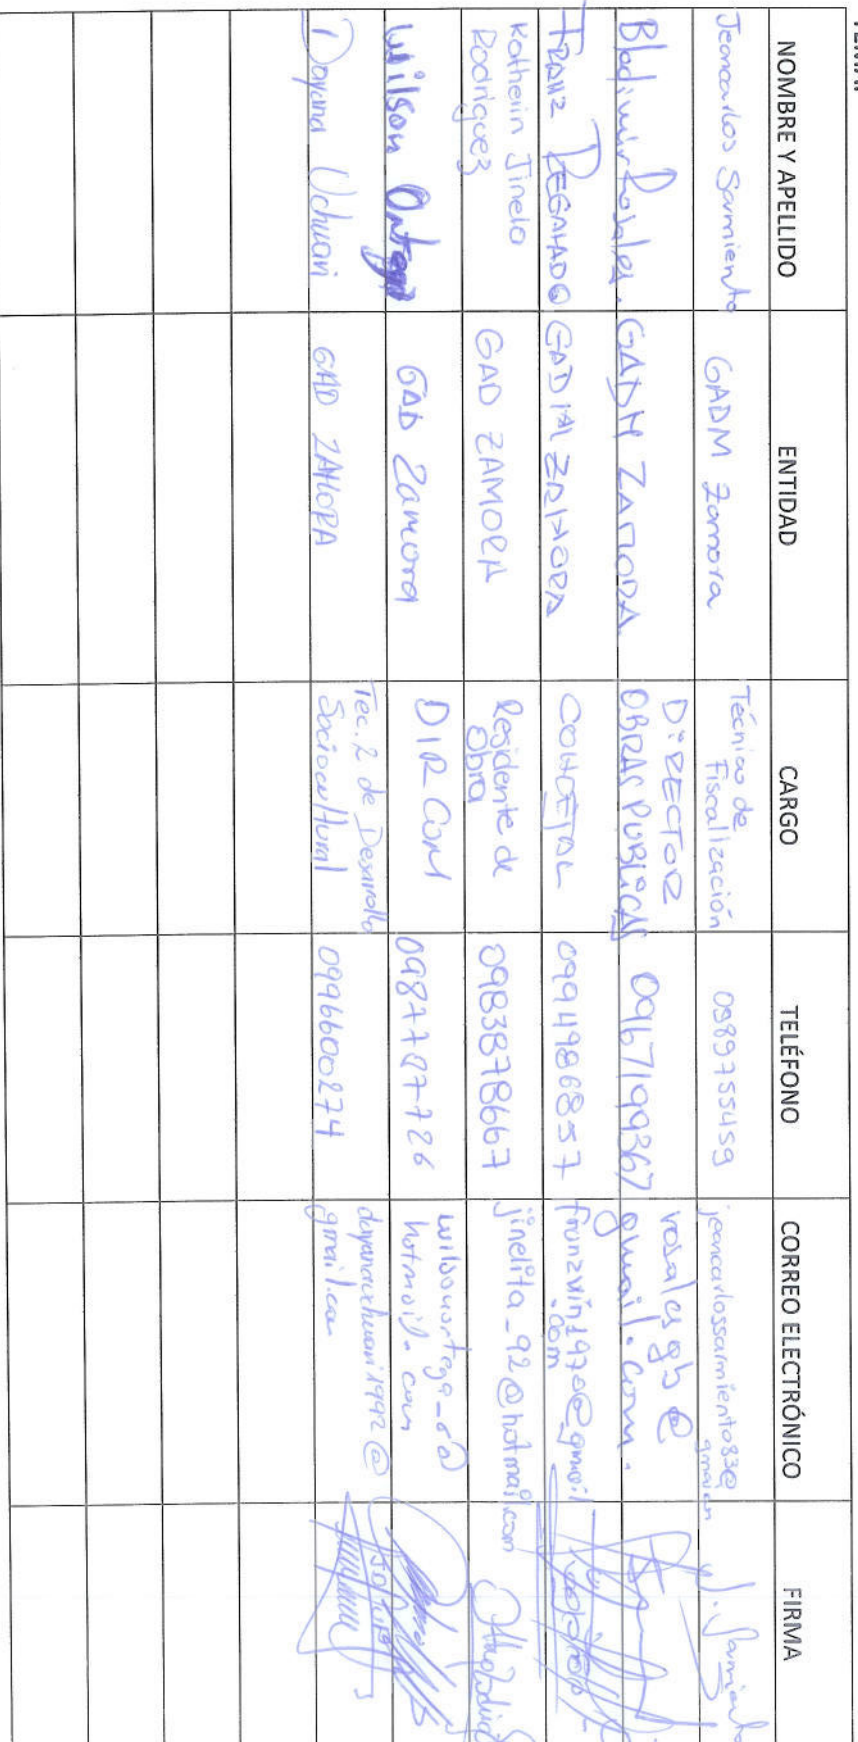 NOMBRE Y APELLIDO ENTIDAD CARGO TELÉFONO CORREO ELECTRÓNICO FIRMA
Jeancarlos Sarmiento GADM Zamora Técnico de Fiscalización 0989755459 jeancarlossarmiento83@ J. Sarmiento
Bladimir Rosales. GADM ZAMORA. DIRECTOR OBRAS PUBLICAS 0967199367 rosalesgb@ gmail.com.
FRANZ REGALADO GADM ZAMORA CONCEJAL 0994986857 franzvin1970@gmail .com
Katherin Jinela Rodriguez GAD ZAMORA Residente de Obra 0983878667 jinelita_92@hotmail.com
Wilson Ortega GAD Zamora DIR COM 0987787726 hotmail.com
Dayana Uchuari GAD ZAMORA Tec. 2 de Desarrollo Sociocultural 0996600274 dayanauchuari1992@ gmail.com